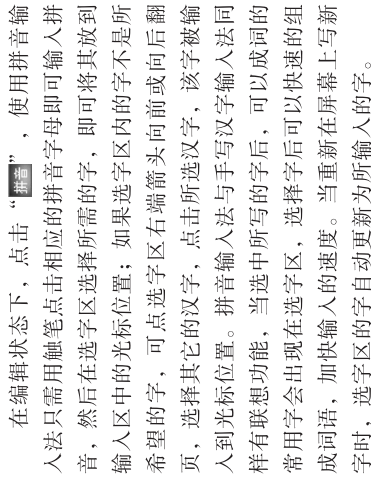 在编辑状态下，点击“拼音”，使用拼音输
入法只需用触笔点击相应的拼音字母即可输入拼
音，然后在选字区选择所需的字，即可将其放到
输入区中的光标位置；如果选字区内的字不是所
希望的字，可点选字区右端箭头向前或向后翻
页，选择其它的汉字，点击所选汉字，该字被输
入到光标位置。拼音输入法与手写汉字输入法同
样有联想功能，当选中所写的字后，可以成词的
常用字会出现在选字区，选择字后可以快速的组
成词语，加快输入的速度。当重新在屏幕上写新
字时，选字区的字自动更新为所输入的字。